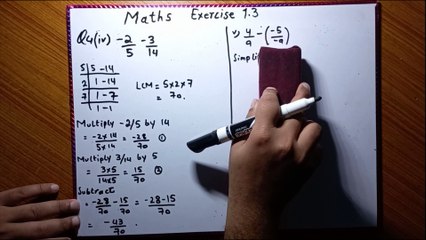 Maths Exercise 1.3
Q4(iv) -2/5 -3/14
5 | 5 - 14
2 | 1 - 14
7 | 1 - 7
1 - 1
LCM = 5x2x7
= 70.
Multiply -2/5 by 14
= -2x14/5x14 = -28/70 ①
Multiply 3/14 by 5
= 3x5/14x5 = 15/70 ②
Subtract
= -28/70 - 15/70 = -28-15/70
= -43/70.
v) 4/9 - (-5/-9)